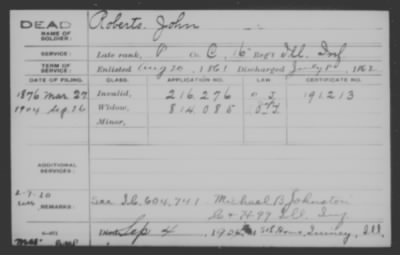 DEAD
NAME OF SOLDIER:
Roberts. John
SERVICE:
Late rank, P Co. C, 16 Reg't Ill. Inf
TERM OF SERVICE:
Enlisted Aug 20, 1861 Discharged July 8, 186
DATE OF FILING. CLASS. APPLICATION NO. CERTIFICATE NO.
1876 Mar 27 Invalid, 216.276 191213
1904 Sep 26 Widow, 814.085
Minor,
ADDITIONAL SERVICES:
2-9-20
REMARKS:
See I.C. 604,741. Michael B. Johnston
74-97 Ill. Inf
Sep 4, 190 Home, Quincy, Ill.